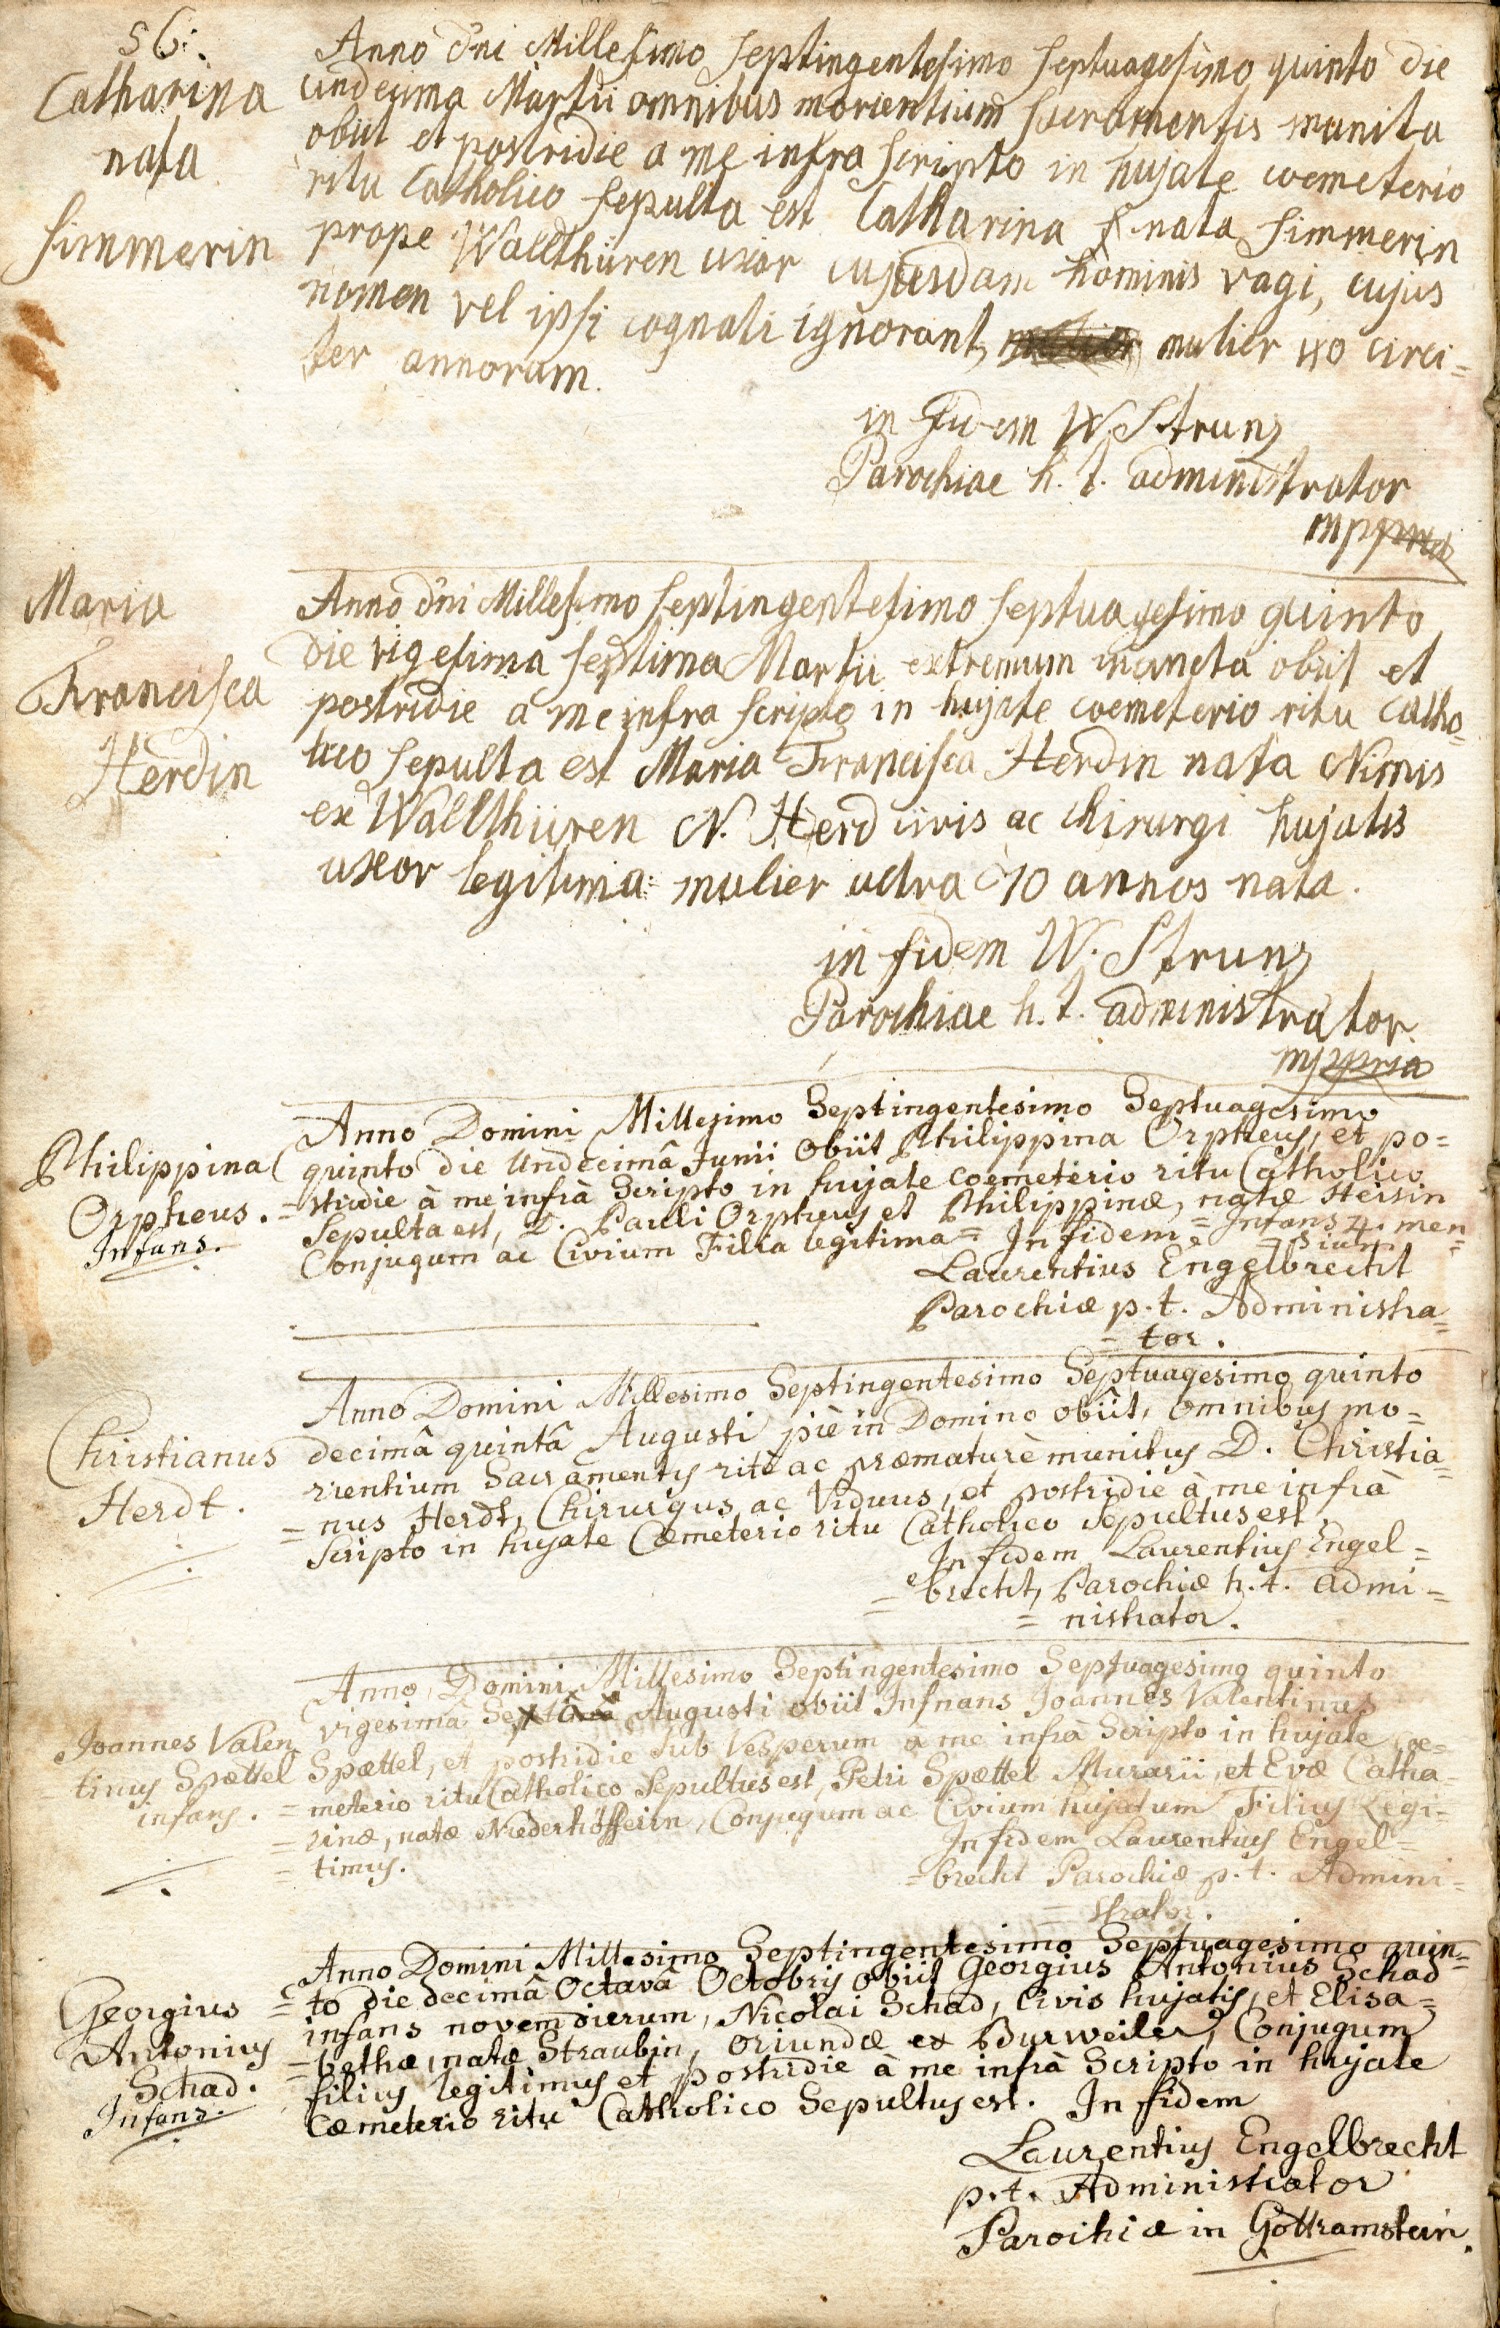 56.
Catharina
nata
Simmerin
Anno dni Millesimo septingentesimo septuagesimo quinto die
undecima Martii omnibus morientium sacramentis munita
obiit et postridie a me infra scripto in hujate coemeterio
ritu Catholico sepulta est Catharina nata Simmerin
prope Wallthüren uxor cujusdam hominis vagi, cujus
nomen vel ipsi cognati ignorant, mulier 40 circi=
ter annorum.
in Fidem W. Strunz
Parochiae h. t. administrator
mppria
Maria
Francisca
Herdin
Anno dni Millesimo septingentesimo septuagesimo quinto
die vigesima septima Martii extremum inuncta obiit et
postridie a me infra scripto in hujate coemeterio ritu Catho=
lico sepulta est Maria Francisca Herdin nata Nimis
ex Wallthüren N. Herd civis ac chirurgi hujatis
uxor legitima: mulier ultra 70 annos nata.
in fidem W. Strunz
Parochiae h. t. administrator.
mppria
Philippina
Orpheus.
Infans.
Anno Domini Millesimo Septingentesimo Septuagesimo
quinto die Undecimâ Junii obiit Philippina Orpheus, et po=
=stridie à me infrà Scripto in hujate coemeterio ritu Catholico
Sepulta est, D. Pauli Orpheus et Philippinæ, natæ Steisin
Conjugum ac Civium Filia legitima = Infans 4. men=
sium.
In fidem
Laurentius Engelbrecht
Parochiæ p. t. Administra=
=tor.
Christianus
Herdt.
Anno Domini Millesimo Septingentesimo Septuagesimo quinto
decimâ quintâ Augusti piè in Domino obiît, omnibus mo=
rientium Sacramentis ritè ac præmaturè munitus D. Christia=
=nus Herdt, Chirurgus ac Viduus, et postridie à me infrà
Scripto in hujate Cæmeterio ritu Catholico Sepultus est.
In fidem Laurentius Engel=
=brecht, Parochiæ h. t. admi=
=nistrator.
Joannes Valen
tinus Spættel
infans.
Anno Domini Millesimo Septingentesimo Septuagesimo quinto
vigesimâ Sextâ Augusti obiit Infnans Joannes Valentinus
Spættel, et postridie sub Vesperum a me infrà Scripto in hujate coe=
=meterio ritu Catholico Sepultus est, Petri Spættel Murarii, et Evæ Catha=
=rinæ, natæ Niederhöfferin, Conjugum ac Civium hujatum Filius Legi=
=timus.
In fidem Laurentius Engel=
=brecht Parochiæ p. t. Admini=
=strator.
Georgius
Antonius
Schad.
Infans.
Anno Domini Millesimo Septingentesimo Septuagesimo quin=
=to die decimâ Octavâ Octobris obiit Georgius Antonius Schad
infans novem dierum, Nicolai Schad, Civis hujatis, et Elisa=
=bethæ, natæ Straubin, oriundæ ex Burweiler, Conjugum
filius legitimus et postridie à me infrà Scripto in hujate
Cæmeterio ritu Catholico Sepultus est. In fidem
Laurentius Engelbrecht
p. t. Administrator
Parochiæ in Gottramstein.